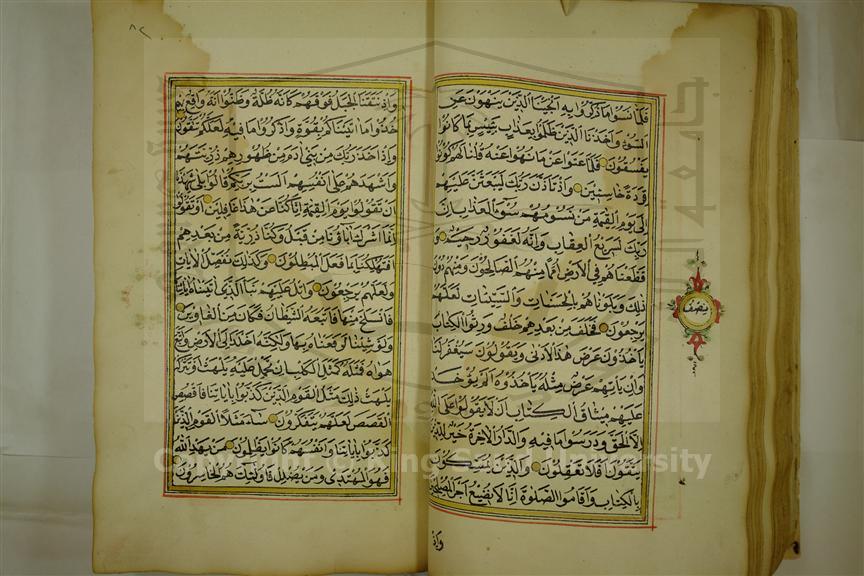 فلما نسوا ما ذكروا به انجينا الذين ينهون عن
السوء واخذنا الذين ظلموا بعذاب بئيس بما كانوا
يفسقون فلما عتوا عن ما نهوا عنه قلنا لهم كونوا
قردة خاسئين واذ تاذن ربك ليبعثن عليهم
الى يوم القيمة من يسومهم سوء العذاب ان
ربك لسريع العقاب وانه لغفور رحيم و
قطعناهم في الارض امما منهم الصالحون ومنهم دون
ذلك وبلوناهم بالحسنات والسيئات لعلهم
يرجعون فخلف من بعدهم خلف ورثوا الكتاب
ياخذون عرض هذا الادنى ويقولون سيغفر لنا
وان ياتهم عرض مثله ياخذوه الم يؤخذ
عليهم ميثاق الكتاب ان لا يقولوا على الله
الا الحق ودرسوا ما فيه والدار الاخرة خير للذين
يتقون افلا تعقلون والذين يمسكون
بالكتاب واقاموا الصلوة انا لا نضيع اجر المصلحين
واذ
نصف
٨٢
واذ نتقنا الجبل فوقهم كانه ظلة وظنوا انه واقع بهم
خذوا ما اتيناكم بقوة واذكروا ما فيه لعلكم تتقون
واذ اخذ ربك من بني ادم من ظهورهم ذريتهم
واشهدهم على انفسهم الست بربكم قالوا بلى شهدنا
ان تقولوا يوم القيمة انا كنا عن هذا غافلين او تقولوا
انما اشرك اباؤنا من قبل وكنا ذرية من بعدهم
افتهلكنا بما فعل المبطلون وكذلك نفصل الايات
ولعلهم يرجعون واتل عليهم نبا الذي اتيناه اياتنا
فانسلخ منها فاتبعه الشيطان فكان من الغاوين
ولو شئنا لرفعناه بها ولكنه اخلد الى الارض واتبع
هواه فمثله كمثل الكلب ان تحمل عليه يلهث او تتركه
يلهث ذلك مثل القوم الذين كذبوا باياتنا فاقصص
القصص لعلهم يتفكرون ساء مثلا القوم الذين
كذبوا باياتنا وانفسهم كانوا يظلمون من يهد الله
فهو المهتدي ومن يضلل فاولئك هم الخاسرون
Copyright © King Saud University